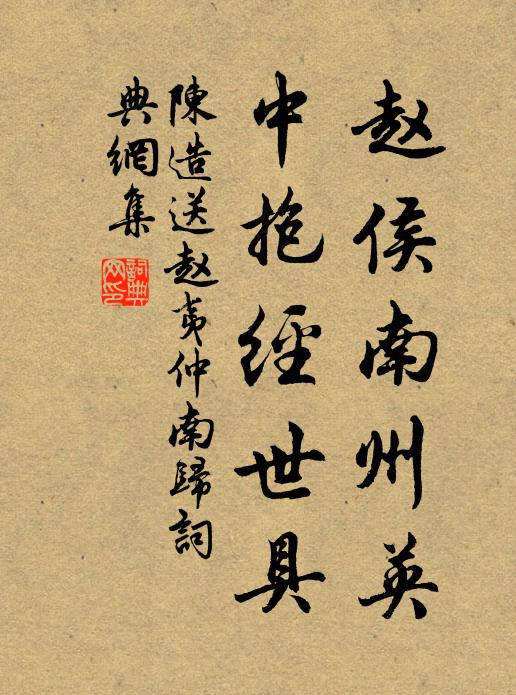 赵侯南州英
中抱經世具
陳造送赵夷仲南歸詞
典網集
詞典
网印